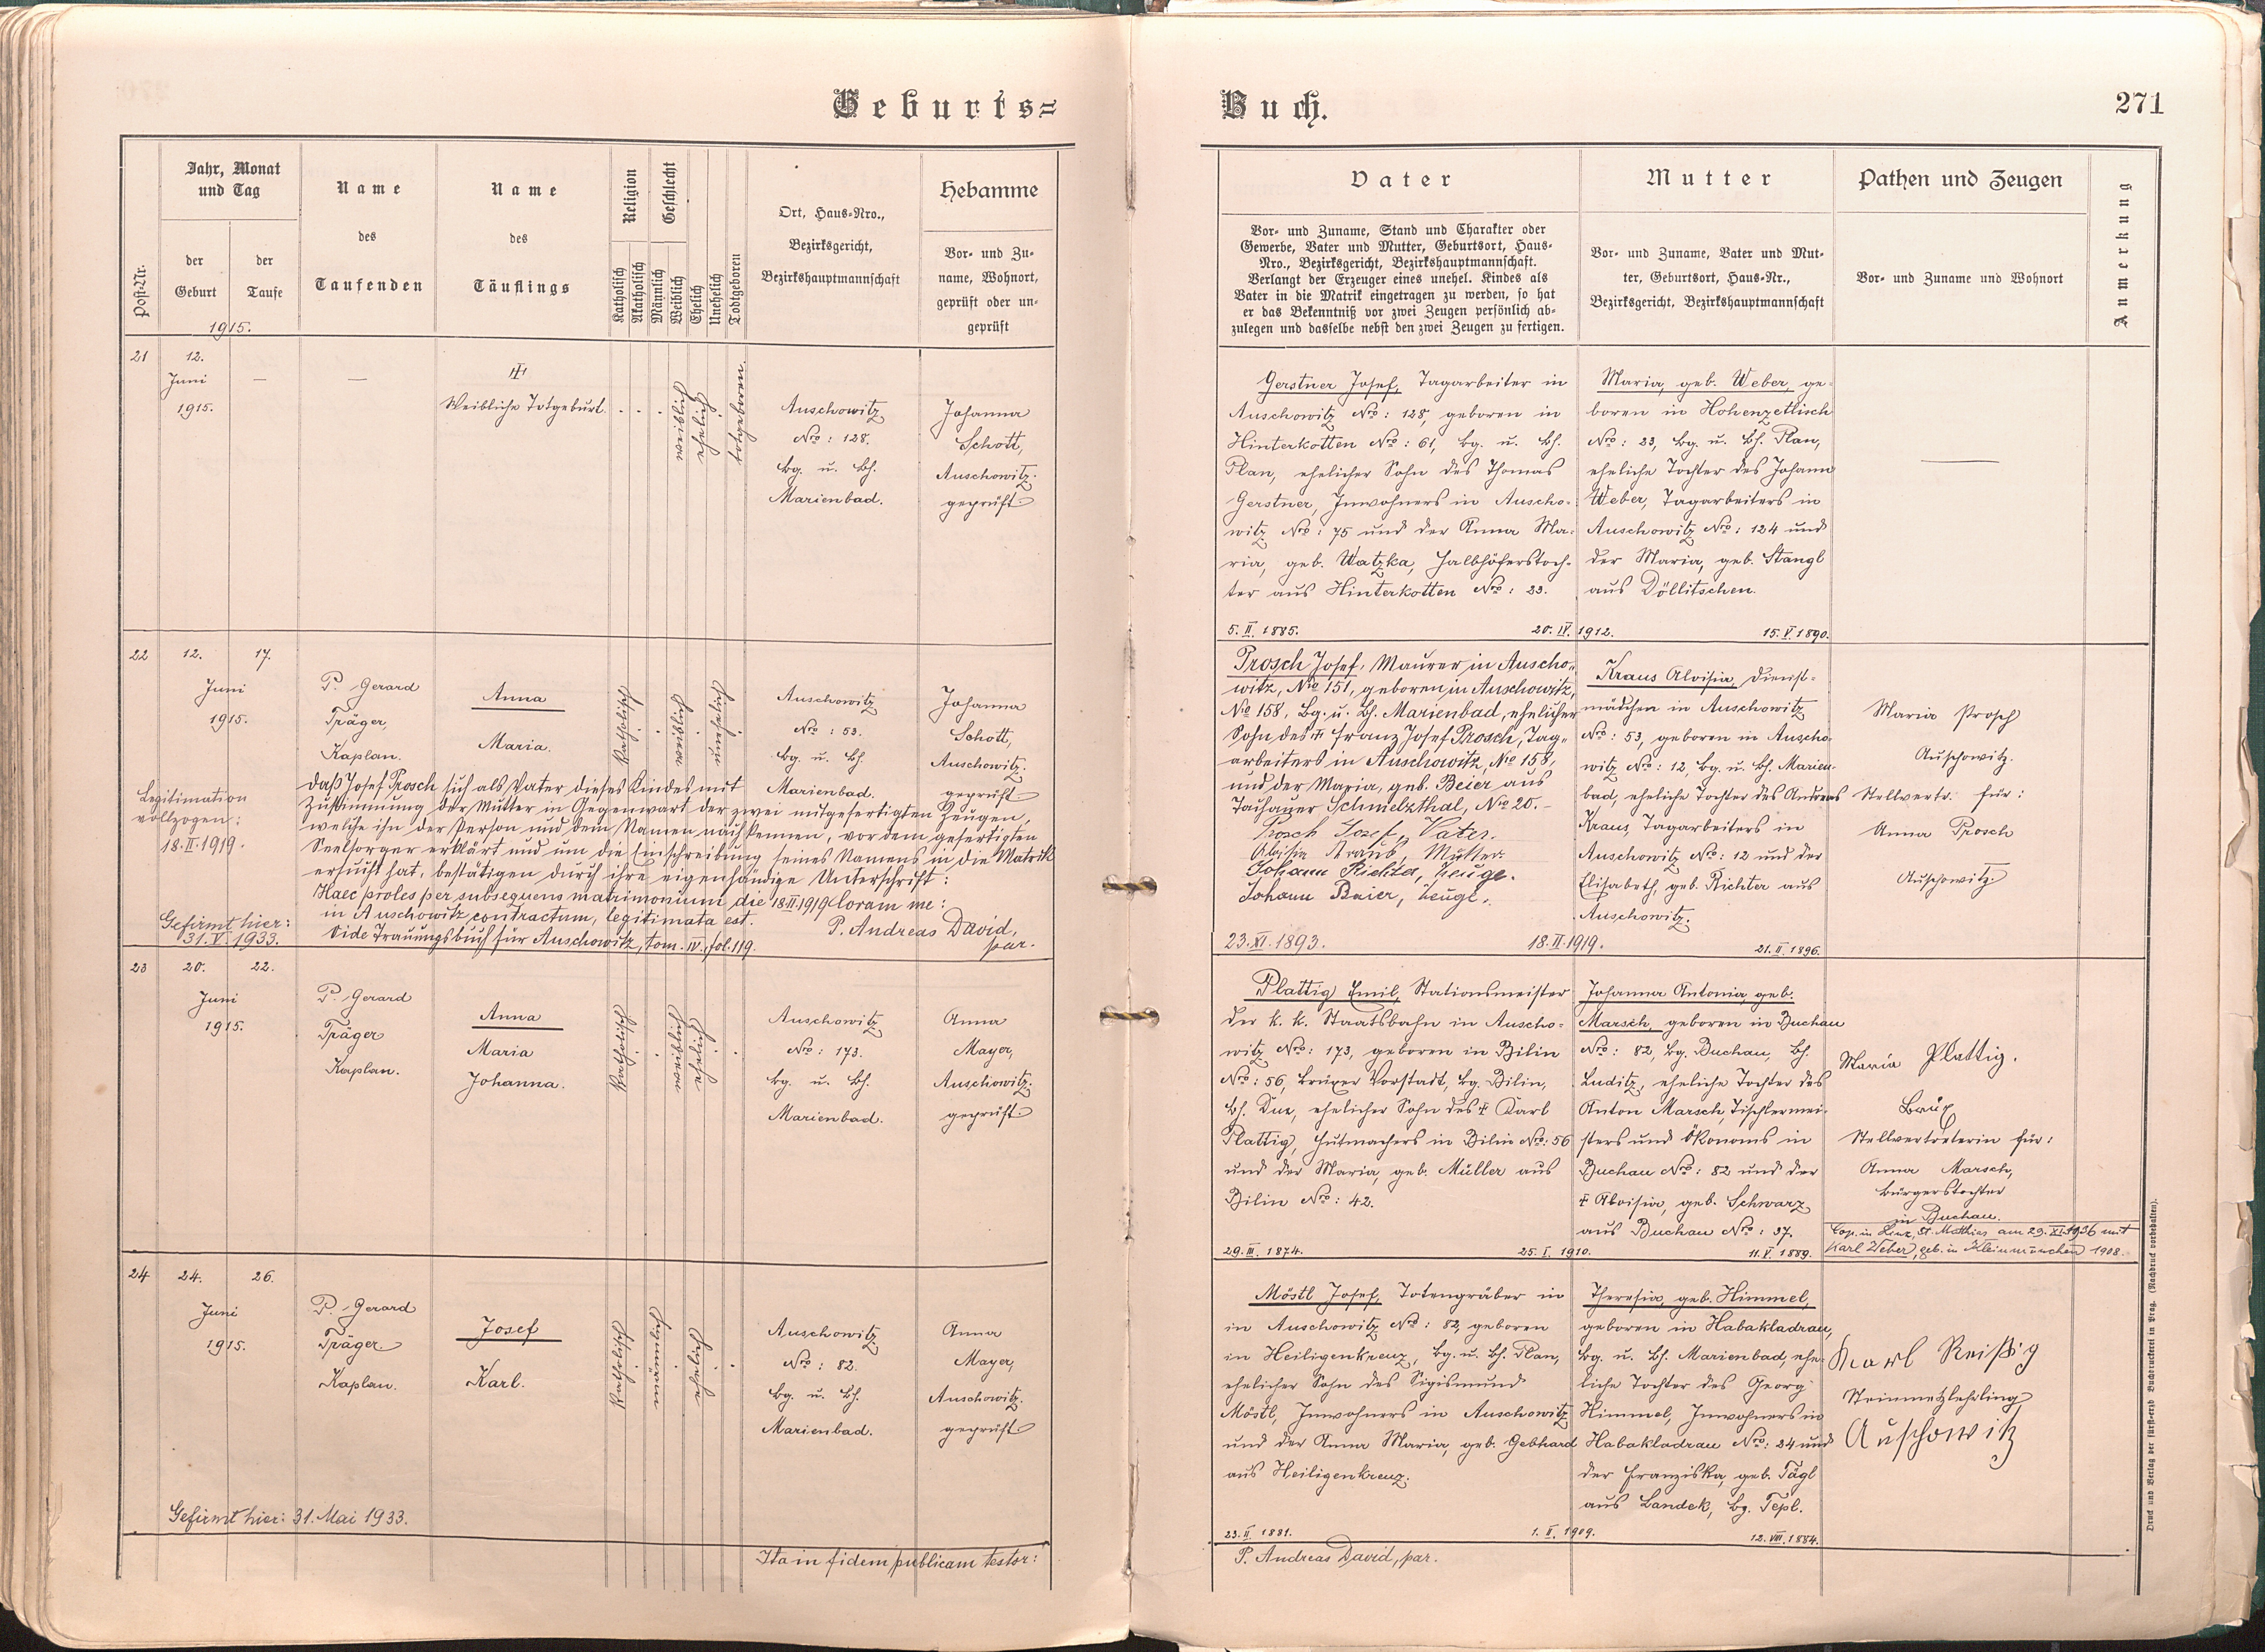 Geburts=
Buch.
271
Post-Nr.
Jahr, Monat
und Tag
der
Geburt
der
Taufe
1915.
Name
des
Taufenden
Name
des
Täuflings
Religion
Katholisch
Akatholisch
Geschlecht
Männlich
Weiblich
Ehelich
Unehelich
Todtgeboren
Ort, Haus-Nro.,
Bezirksgericht,
Bezirkshauptmannschaft
Hebamme
Vor- und Zu-
name, Wohnort,
geprüft oder un-
geprüft
Vater
Vor- und Zuname, Stand und Charakter oder
Gewerbe, Vater und Mutter, Geburtsort, Haus-
Nro., Bezirksgericht, Bezirkshauptmannschaft.
Verlangt der Erzeuger eines unehel. Kindes als
Vater in die Matrik eingetragen zu werden, so hat
er das Bekenntniß vor zwei Zeugen persönlich ab-
zulegen und dasselbe nebst den zwei Zeugen zu fertigen.
Mutter
Vor- und Zuname, Vater und Mut-
ter, Geburtsort, Haus-Nr.,
Bezirksgericht, Bezirkshauptmannschaft
Pathen und Zeugen
Vor- und Zuname und Wohnort
Anmerkung
21
12.
Juni
1915.
—
—
Weibliche Totgeburt.
weiblich
ehelich
totgeboren.
Auschowitz
Nro: 128.
Bg. u. Bh.
Marienbad.
Johanna
Schott,
Auschowitz.
geprüft
Gerstner Josef, Tagarbeiter in
Auschowitz Nro: 128, geboren in
Hinterkotten Nro: 61, Bg. u. Bh.
Plan, ehelicher Sohn des Thomas
Gerstner, Inwohners in Auscho-
witz Nro: 75 und der Anna Ma-
ria, geb. Watzka, Halbhöferstoch-
ter aus Hinterkotten Nro: 23.
5. II. 1885.
20. IV. 1912.
Maria, geb. Weber, ge-
boren in Hohenzetlisch
Nro: 23, Bg. u. Bh. Plan,
eheliche Tochter des Johann
Weber, Tagarbeiters in
Auschowitz Nro: 124 und
der Maria, geb. Stangl
aus Döllitschen.
15. V. 1890.
22
12.
17.
Juni
1915.
P. Gerard
Träger,
Kaplan.
Anna
Maria.
katholisch
weiblich
unehelich
Auschowitz
Nro: 53.
Bg. u. Bh.
Marienbad.
Johanna
Schott,
Auschowitz.
geprüft
Legitimation
vollzogen:
18. II. 1919.
Gefirmt hier:
31. V. 1933.
Daß Josef Prosch sich als Vater dieses Kindes mit
Zustimmung der Mutter in Gegenwart der zwei mitgefertigten Zeugen,
welche ihn der Person und dem Namen nach kennen, vor dem gefertigten
Seelsorger erklärt und um die Einschreibung seines Namens in die Matrik
ersucht hat, bestätigen durch ihre eigenhändige Unterschrift:
Haec proles per subsequens matrimonium die 18. II. 1919 Coram me:
in Auschowitz contractum, legitimata est.
P. Andreas David,
par.
Vide Trauungsbuch für Auschowitz, tom. IV., fol. 119.
Prosch Josef, Maurer in Auscho-
witz, No 151, geboren in Auschowitz,
No 158, Bg. u. Bh. Marienbad, ehelicher
Sohn des † Franz Josef Prosch, Tag-
arbeiters in Auschowitz, No 158,
und der Maria, geb. Beier aus
Tachauer Schmelzthal, No 20.–
Prosch Josef, Vater.
Aloisia Kraus, Mutter.
Johann Richter, Zeuge.
Johann Baier, Zeuge.
23. XI. 1893.
18. II. 1919.
Kraus Aloisia, Dienst-
mädchen in Auschowitz
Nro: 53, geboren in Auscho-
witz Nro: 12, Bg. u. Bh. Marien-
bad, eheliche Tochter des Andreas
Kraus, Tagarbeiters in
Auschowitz Nro: 12 und der
Elisabeth, geb. Richter aus
Auschowitz.
21. II. 1896.
Maria Prosch
Auschowitz.
Stellvertr. für:
Anna Prosch
Auschowitz
23
20.
22.
Juni
1915.
P. Gerard
Träger
Kaplan.
Anna
Maria
Johanna.
katholisch
weiblich
ehelich
Auschowitz
Nro: 173.
Bg. u. Bh.
Marienbad.
Anna
Mayer,
Auschowitz.
geprüft
Plattig Emil, Stationsmeister
der k. k. Staatsbahn in Auscho-
witz Nro: 173, geboren in Bilin
Nro: 56, Brüxer Vorstadt, Bg. Bilin,
Bh. Dux, ehelicher Sohn des † Karl
Plattig, Hutmachers in Bilin Nro: 56
und der Maria, geb. Müller aus
Bilin Nro: 42.
29. III. 1874.
25. I. 1910.
Johanna Antonia, geb.
Marsch, geboren in Buchau
Nro: 82, Bg. Buchau, Bh.
Luditz, eheliche Tochter des
Anton Marsch, Tischlermei-
sters und Ökonoms in
Buchau Nro: 82 und der
† Aloisia, geb. Schwarz
aus Buchau Nro: 37.
11. V. 1889.
Maria Plattig.
Brüx
Stellvertreterin für:
Anna Marsch,
Bürgerstochter
in Buchau.
Cop. in Linz, St. Mathias am 29. XI. 1936 mit
Karl Weber, geb. in Kleinmünchen 1908.
24
24.
26.
Juni
1915.
P. Gerard
Träger.
Kaplan.
Josef
Karl.
katholisch
männlich
ehelich
Auschowitz
Nro: 82.
Bg. u. Bh.
Marienbad.
Anna
Mayer,
Auschowitz.
geprüft
Gefirmt hier: 31. Mai 1933.
Möstl Josef, Totengräber in
in Auschowitz Nro: 82, geboren
in Heiligenkreuz, Bg. u. Bh. Plan,
ehelicher Sohn des Sigismund
Möstl, Inwohners in Auschowitz
und der Anna Maria, geb. Gebhard
aus Heiligenkreuz.
23. II. 1881.
1. II. 1909.
Theresia, geb. Himmel,
geboren in Habakladrau,
Bg. u. Bh. Marienbad, ehe-
liche Tochter des Georg
Himmel, Inwohners in
Habakladrau Nro: 24 und
der Franziska, geb. Tägl
aus Landek, Bg. Tepl.
12. VIII. 1884.
Karl Reißig
Steinmetzlehrling
Auschowitz
Ita in fidem publicam testor:
P. Andreas David, par.
Druck und Verlag der fürst-erzb. Buchdruckerei in Prag. (Nachdruck vorbehalten).